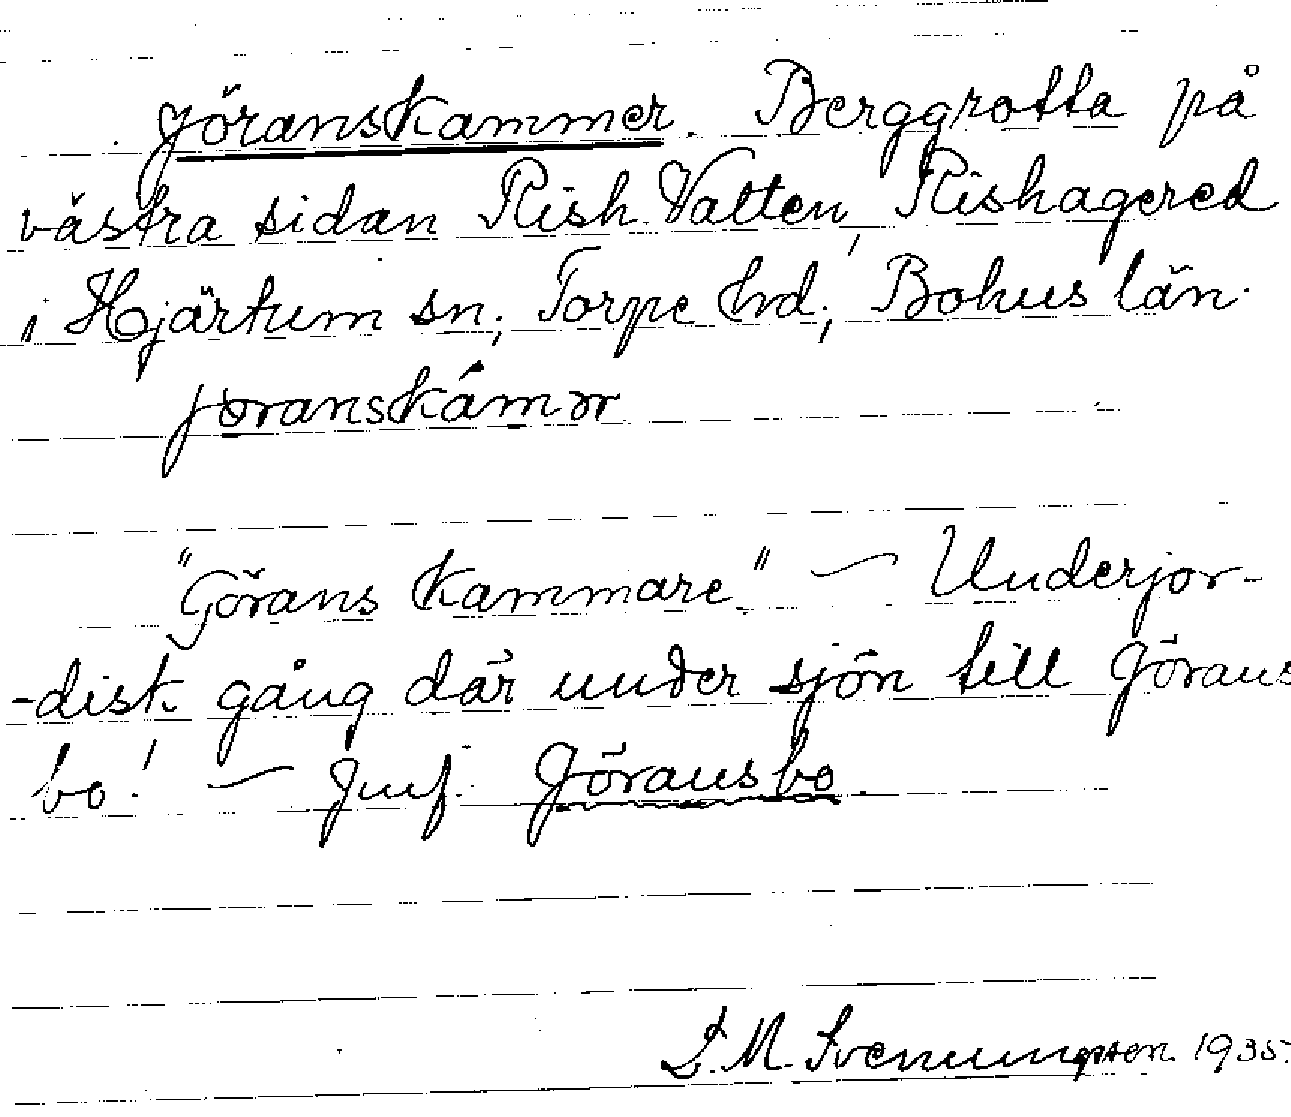 Göranskammer. Berggrotta på
västra sidan Rish Vatten, Rishagered
i Hjärtum sn; Torpe hd; Bohus län.
jøranskámər
"Görans Kammare" – Underjor-
-disk gång där under sjön till Görans
bo! – Jmf. Göransbo.
L. M. Svenungsson 1935.